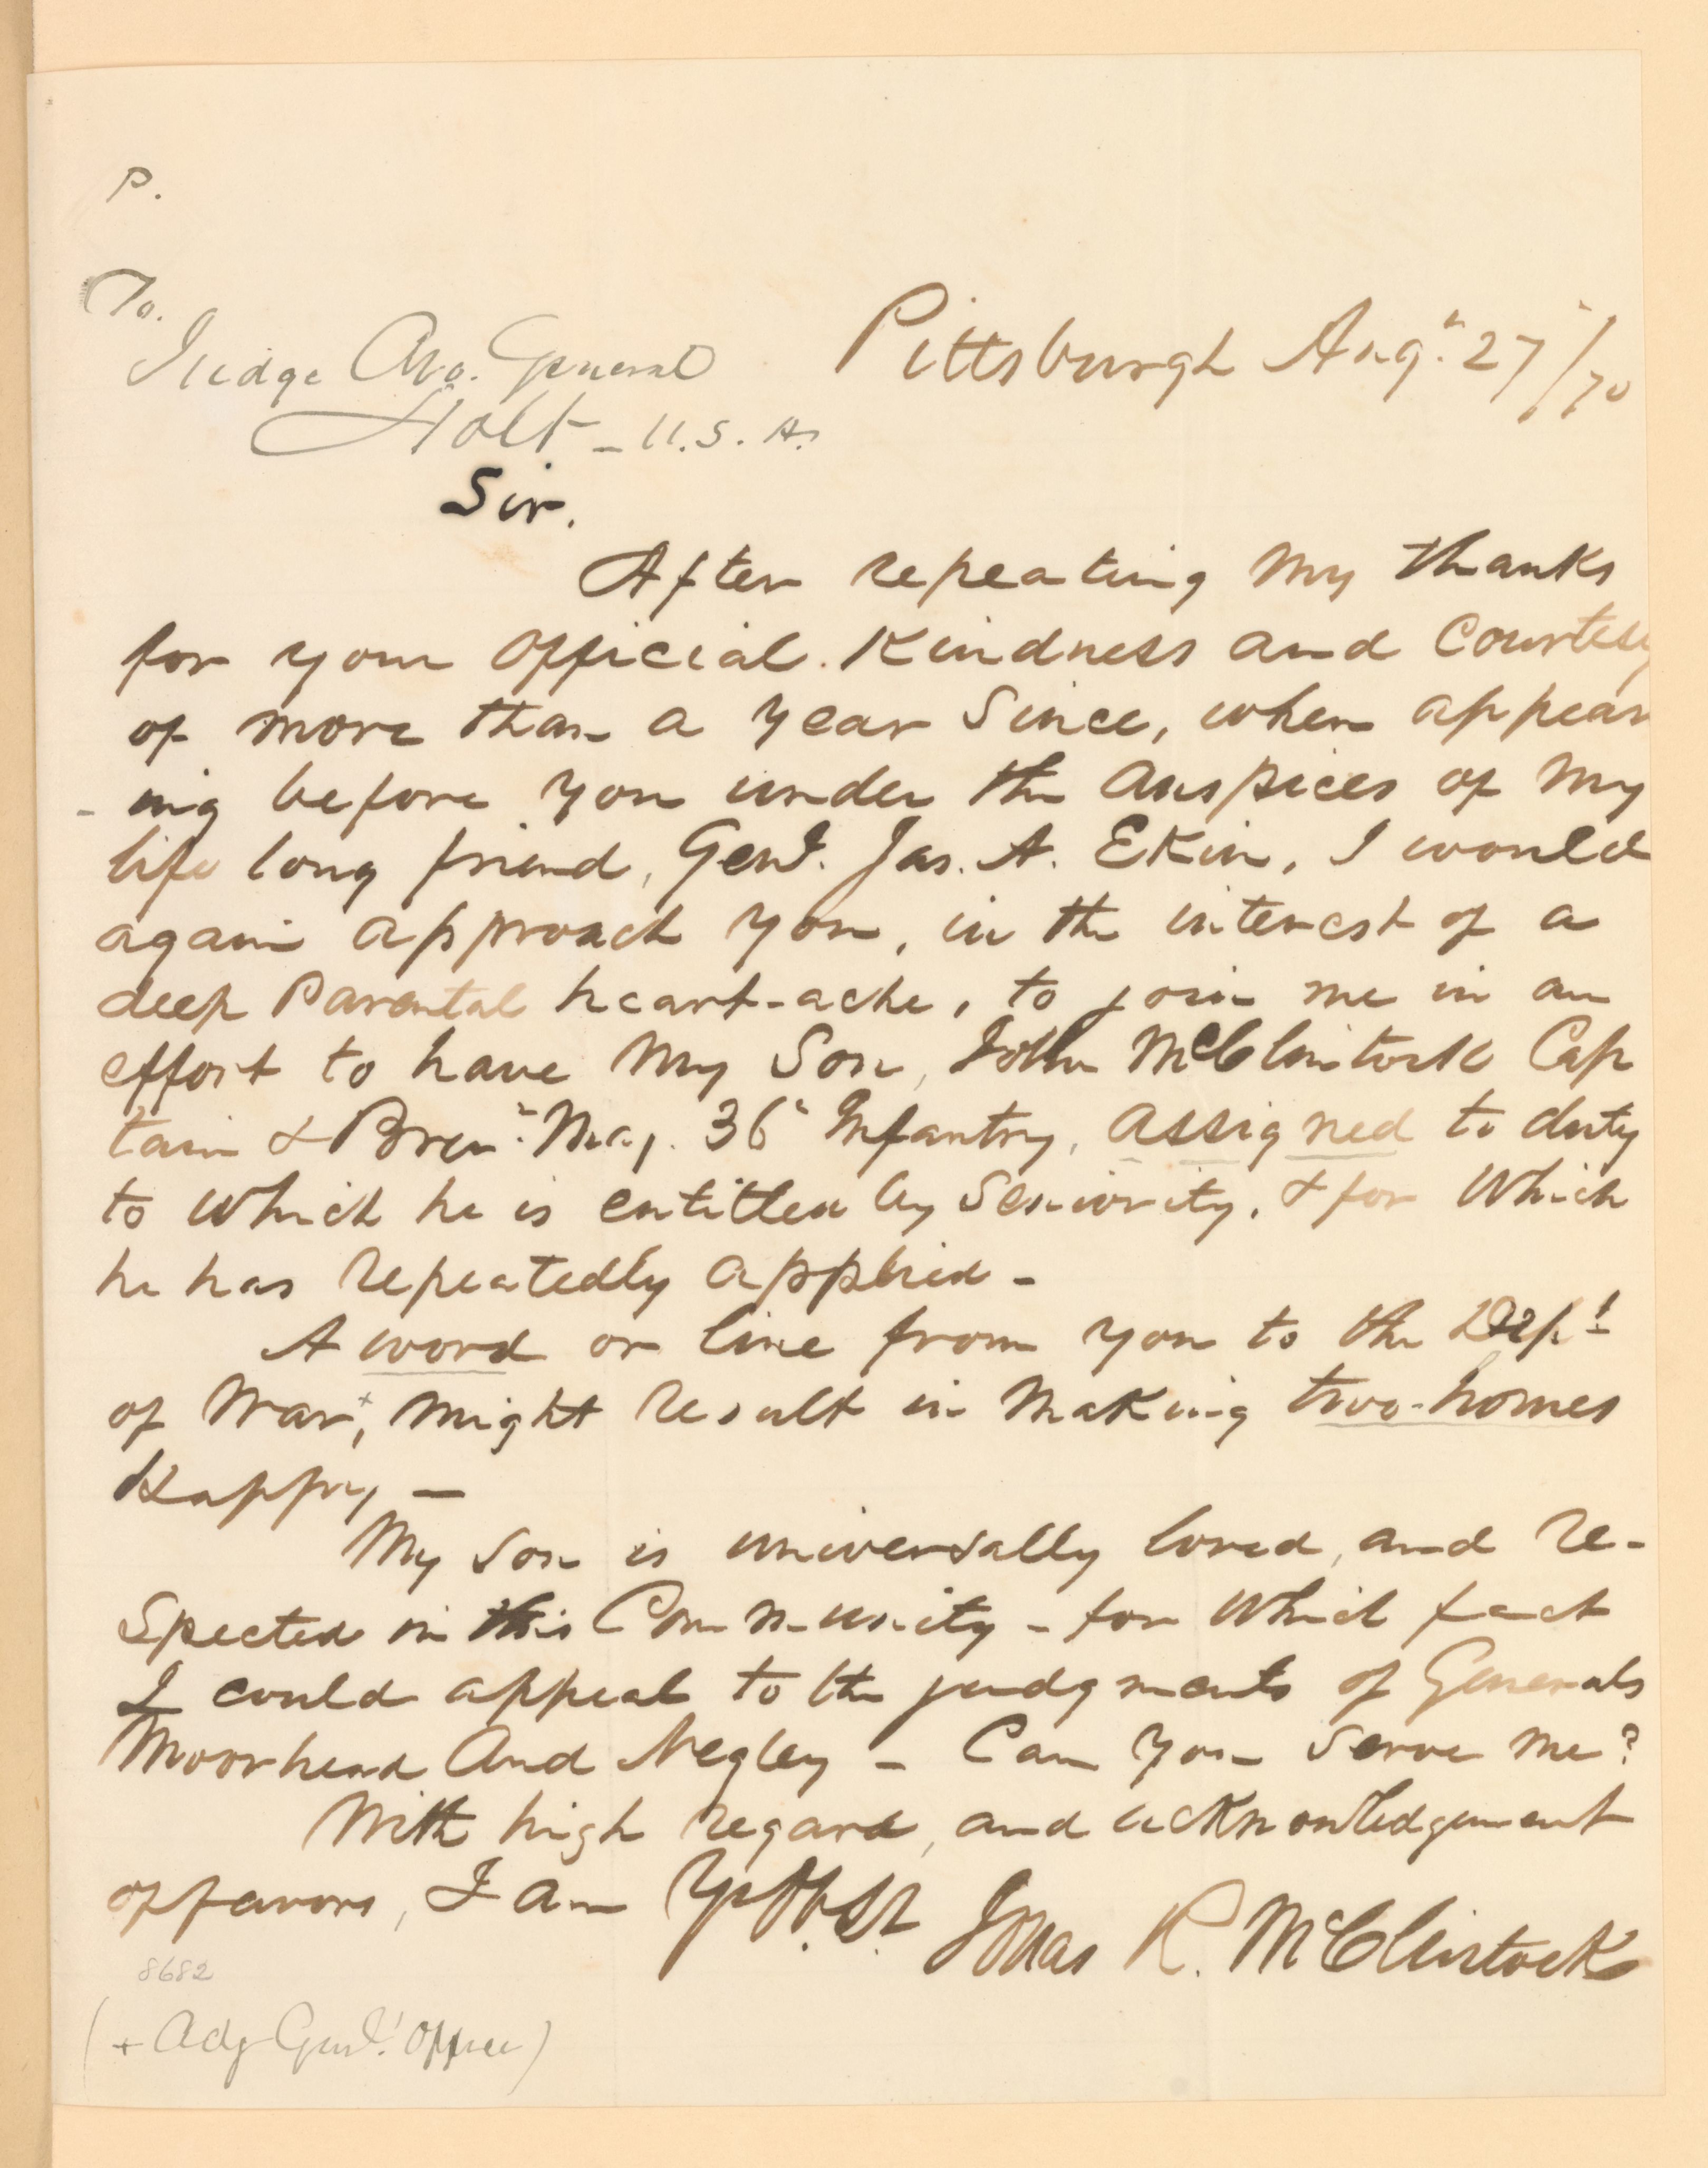 P.
To.
Judge Avo. General
Holt - U.S.A.
Pittsburgh Aug. 27/70
Sir.
After repeating my thanks
for your official kindness and Courtesy
of more than a year since, when appear
- ing before you under the auspices of my
life long friend, Genl. Jas. A. Ekin, I would
again approach you, in the interest of a
deep Parental heart-ache, to join me in an
effort to have my Son, John McClintock Cap
tain & Brev. Maj. 36" Infantry, assigned to duty
to which he is entitled by Seniority, & for which
he has repeatedly applied -
A word or line from you to the Dept
of War,+ might result in making two-homes
Happy, -
My Son is universally loved, and re-
spected in this Community - for which fact
I could appeal to the judgments of Generals
Moorhead and Negley - Can you serve me?
With high regard, and acknowledgement
of favors, I am Jonas R. McClintock
8682
(+ Adj Genl. Office)